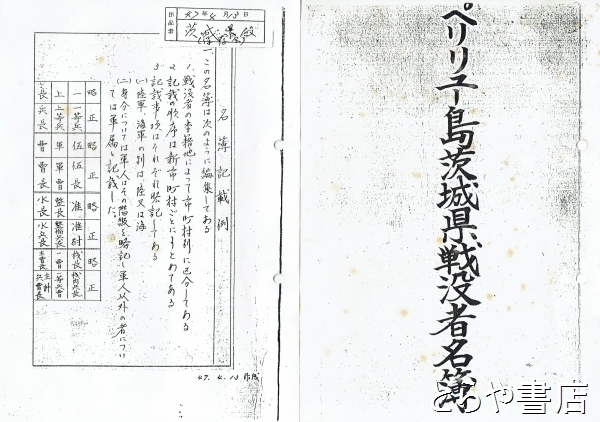 ペリリュー島茨城県戦没者名簿
とらや書店
47年4月13日
茨城県
名簿記載例
一 この名簿は次のように編集してある
1. 戦没者の本籍地によって市町村別に区分してある
2. 記載の順序は新市町村ごとにまとめてある
3. 記載事項はそれぞれ略記してある
(一) 陸軍海軍の別は、陸又は海
(二) 身分については軍人はその階級を略記し軍人以外の者につい
ては軍属と記載した。
略 一 上 兵長
正 一等兵 上等兵 兵長
伍長 軍曹 曹長
伍長 軍曹 曹長
略 准 整長 水長
正 准尉 整備兵長 水兵長
略 機長 一曹 主曹長
正 機関兵長 一等兵曹 主計兵曹長
47.4.13 作成